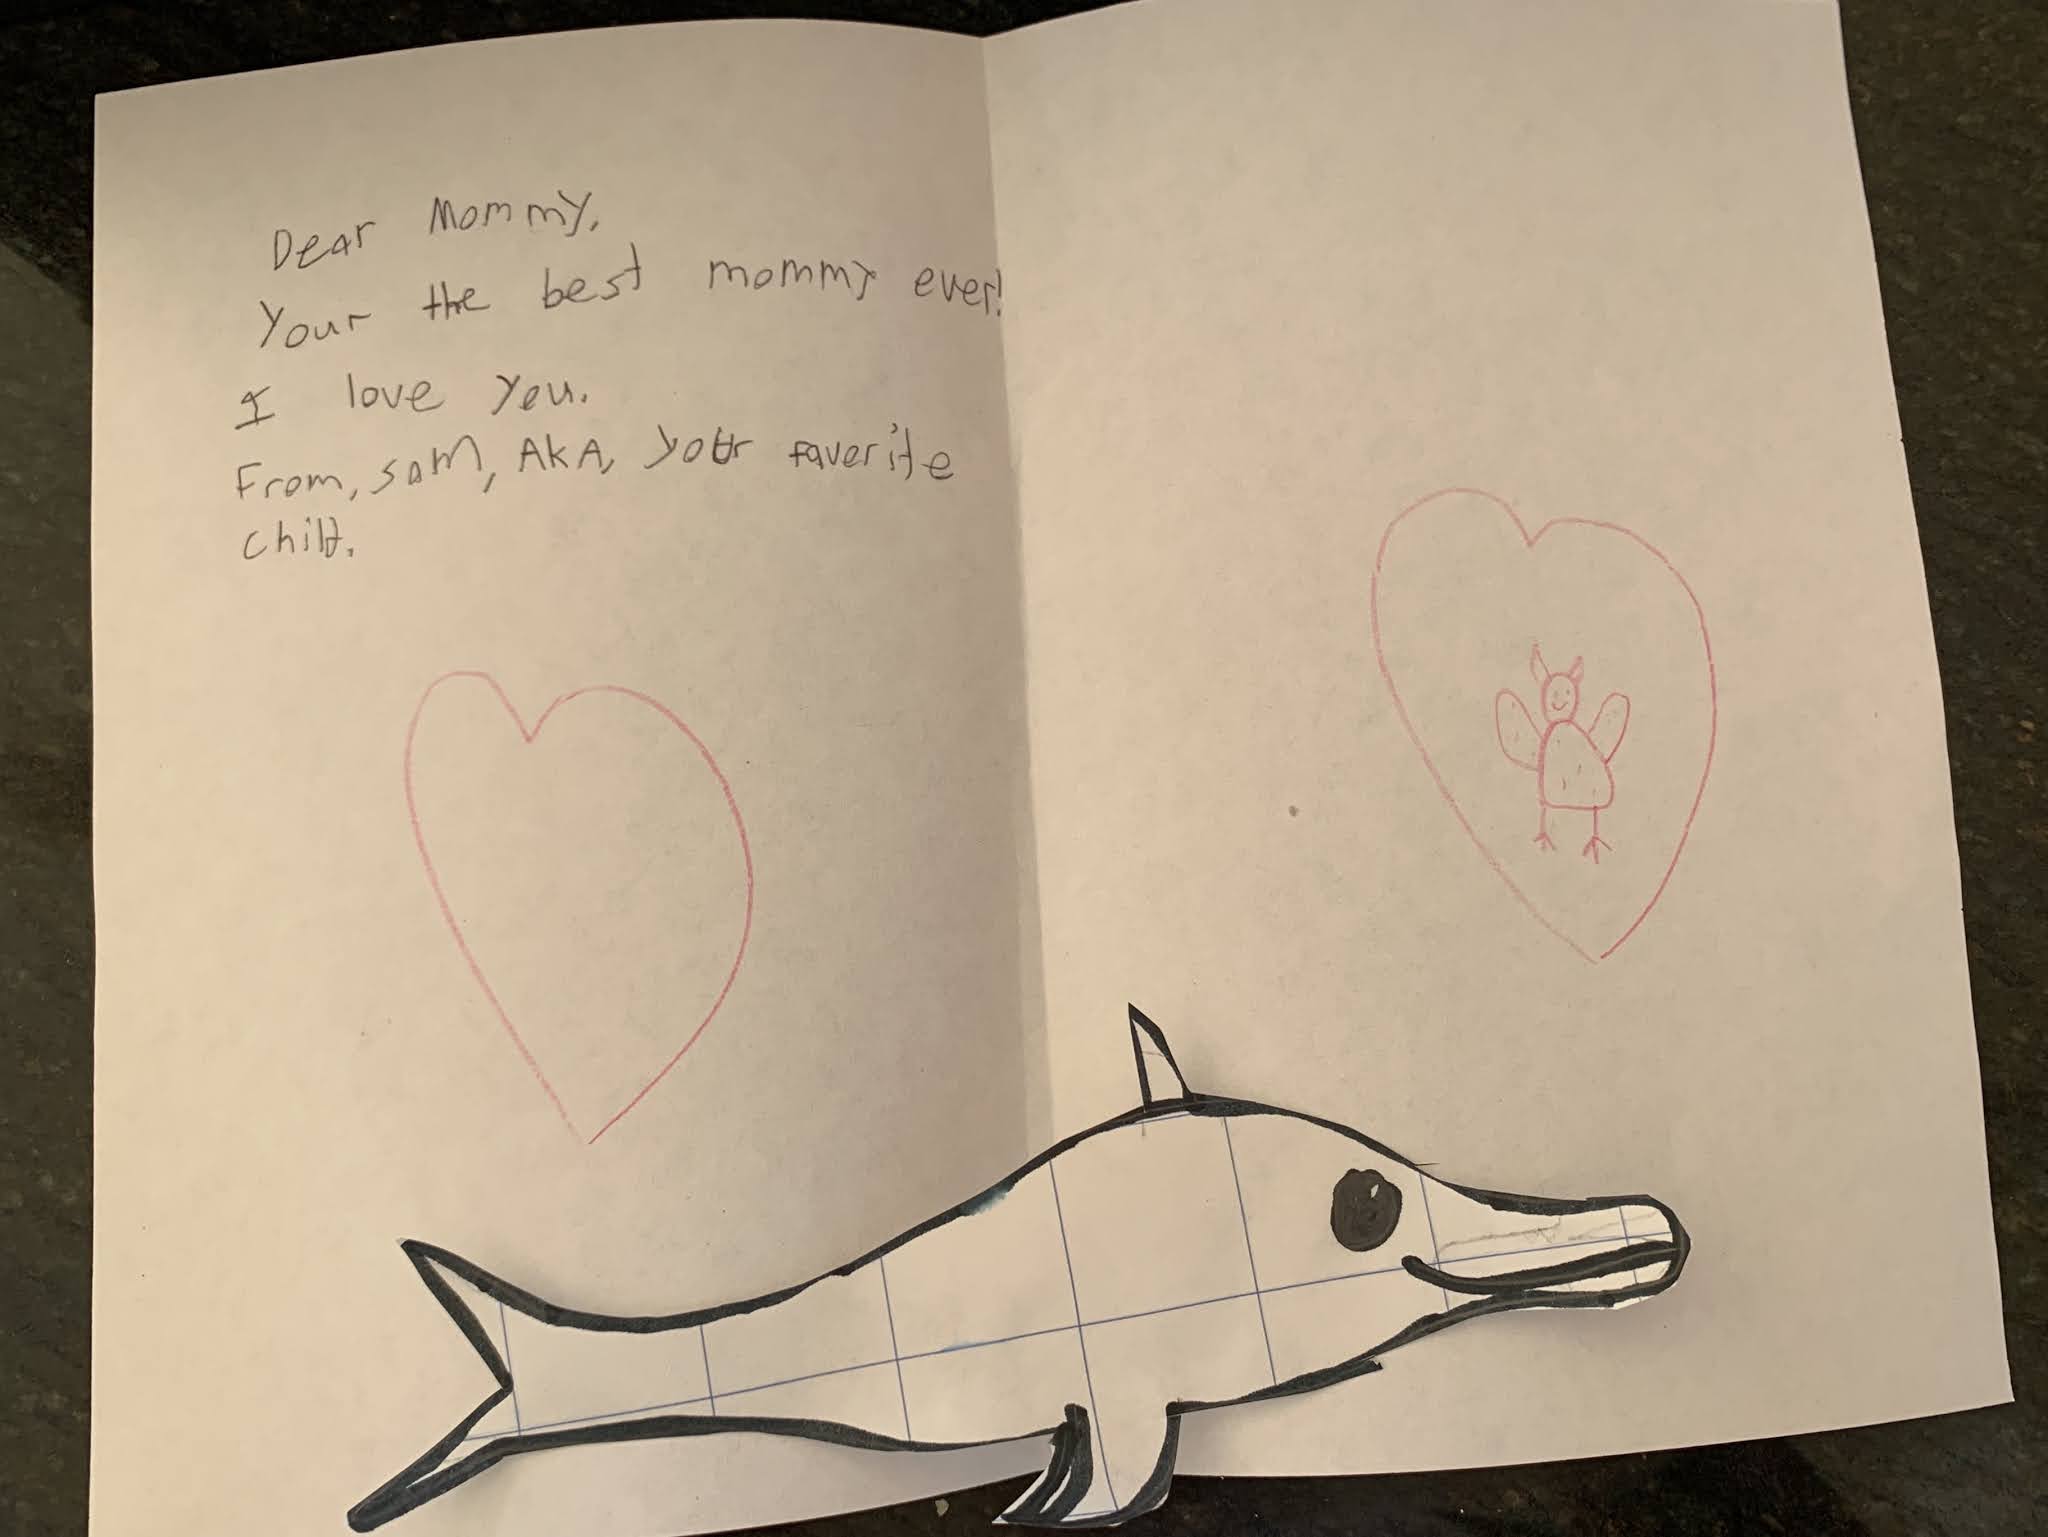 Dear Mommy,
Your the best mommy ever!
I love you.
From, sam, AKA, your faverite
child.